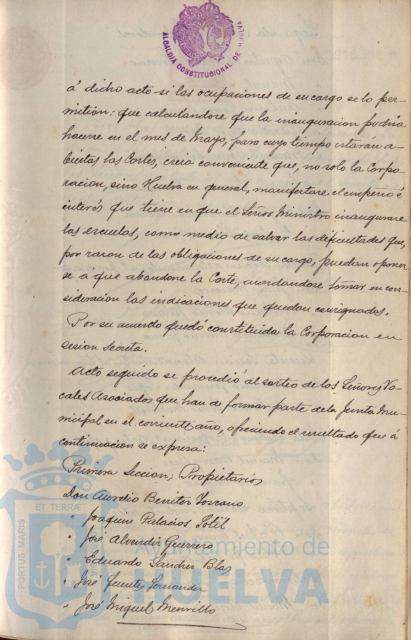 ALCALDIA CONSTITUCIONAL DE HUELVA
á dicho acto si las ocupaciones de su cargo se lo per-
mitian: que calculandose que la inauguracion podria
hacerse en el mes de Mayo, para cuyo tiempo estaran a-
biertas las Cortes, creia conveniente que, no solo la Corpo-
racion, sino Huelva en general, manifestare el empeño é
interés que tiene en que el Señor Ministro inaugurare
las escuelas, como medio de salvar las dificultades que,
por razon de las obligaciones de su cargo, puedan oponer-
se á que abandone la Corte, acordandose tomar en con-
sideracion las indicaciones que quedan consignadas.
Por su acuerdo quedó constituida la Corporacion en
sesion secreta.
Acto seguido se procedió al sorteo de los Señores Vo-
cales Asociados que han de formar parte de la Junta mu-
nicipal en el corriente año, ofreciendo el resultado que á
continuacion se expresa:
Primera Seccion; Propietarios
Don Aurelio Benitez
" Joaquin Palacios
" José Guerrero
" Eduardo Sanchez Blas
" José Fuentes
" José Miguel
PORTUS MARIS ET TERRA
Ayuntamiento de
HUELVA